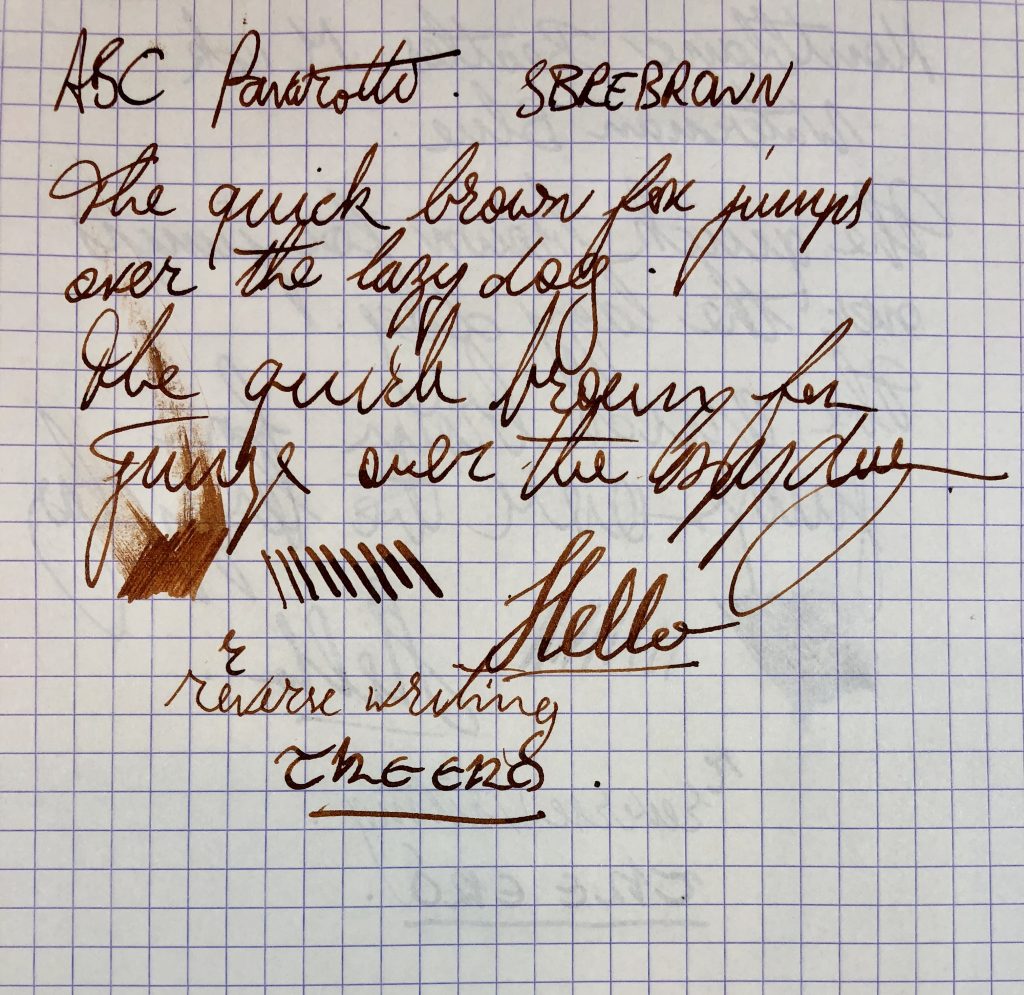 ABC Pavarotti. SBREBROWN
The quick brown fox jumps
over the lazy dog.
The quick brown fox
jumps over the lazy dog.
Hello
r
reverse writing
THE END.